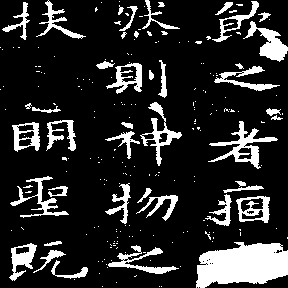 飲之者痼
然則神物之
扶眀聖既